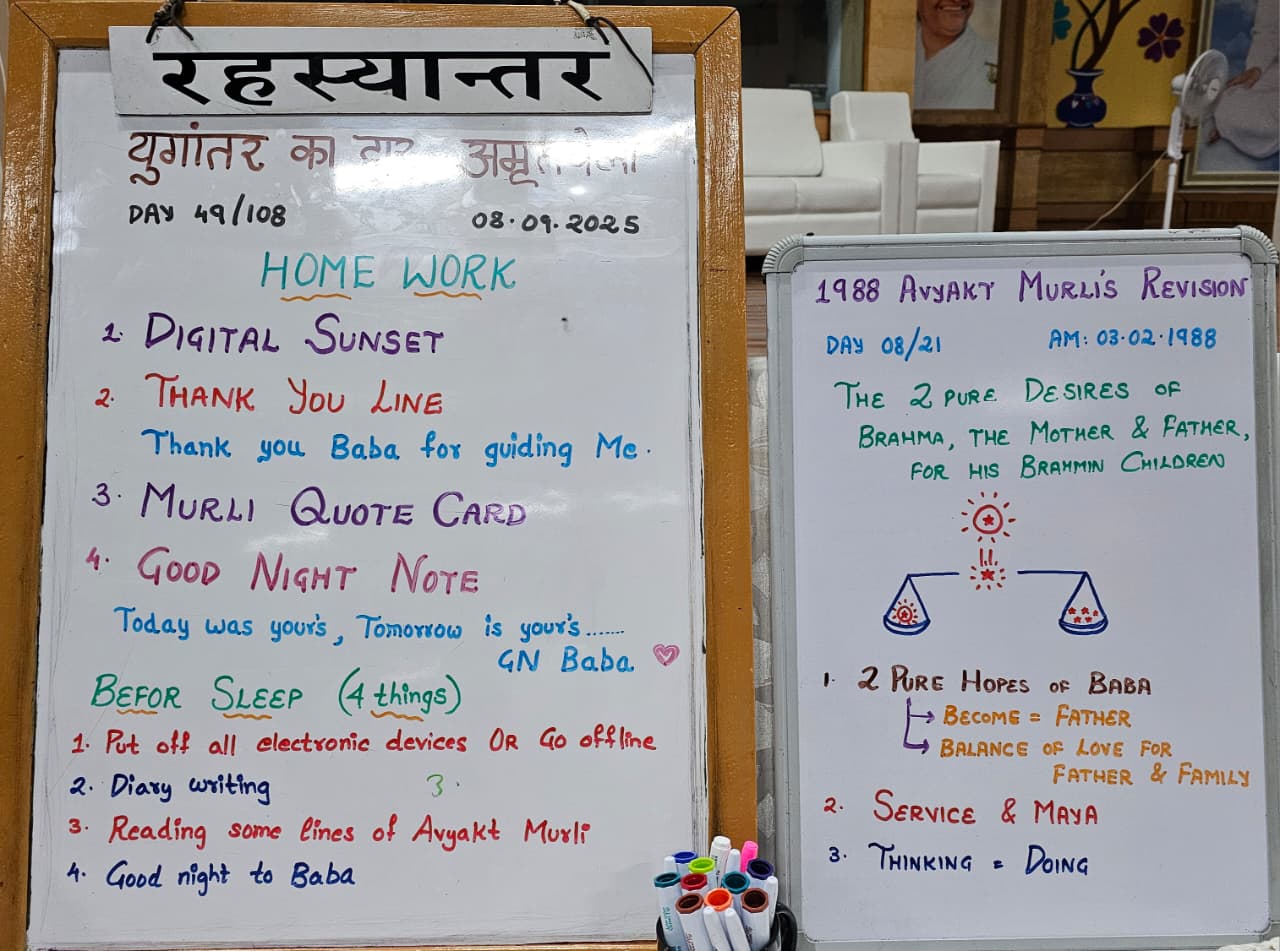 रहस्यान्तर
युगांतर का द्वार अमृतवेला
DAY 49/108 08.09.2025
HOME WORK
1. DIGITAL SUNSET
2. THANK YOU LINE
Thank you Baba for guiding Me.
3. MURLI QUOTE CARD
4. GOOD NIGHT NOTE
Today was your's, Tomorrow is your's.......
GN Baba
BEFOR SLEEP (4 things)
1. Put off all electronic devices OR Go offline
2. Diary writing 3.
3. Reading some lines of Avyakt Murli
4. Good night to Baba
1988 AVYAKT MURLI'S REVISION
DAY 08/21 AM: 03.02.1988
THE 2 PURE DESIRES OF
BRAHMA, THE MOTHER & FATHER,
FOR HIS BRAHMIN CHILDREN
1. 2 PURE HOPES OF BABA
BECOME = FATHER
BALANCE OF LOVE FOR
FATHER & FAMILY
2. SERVICE & MAYA
3. THINKING = DOING